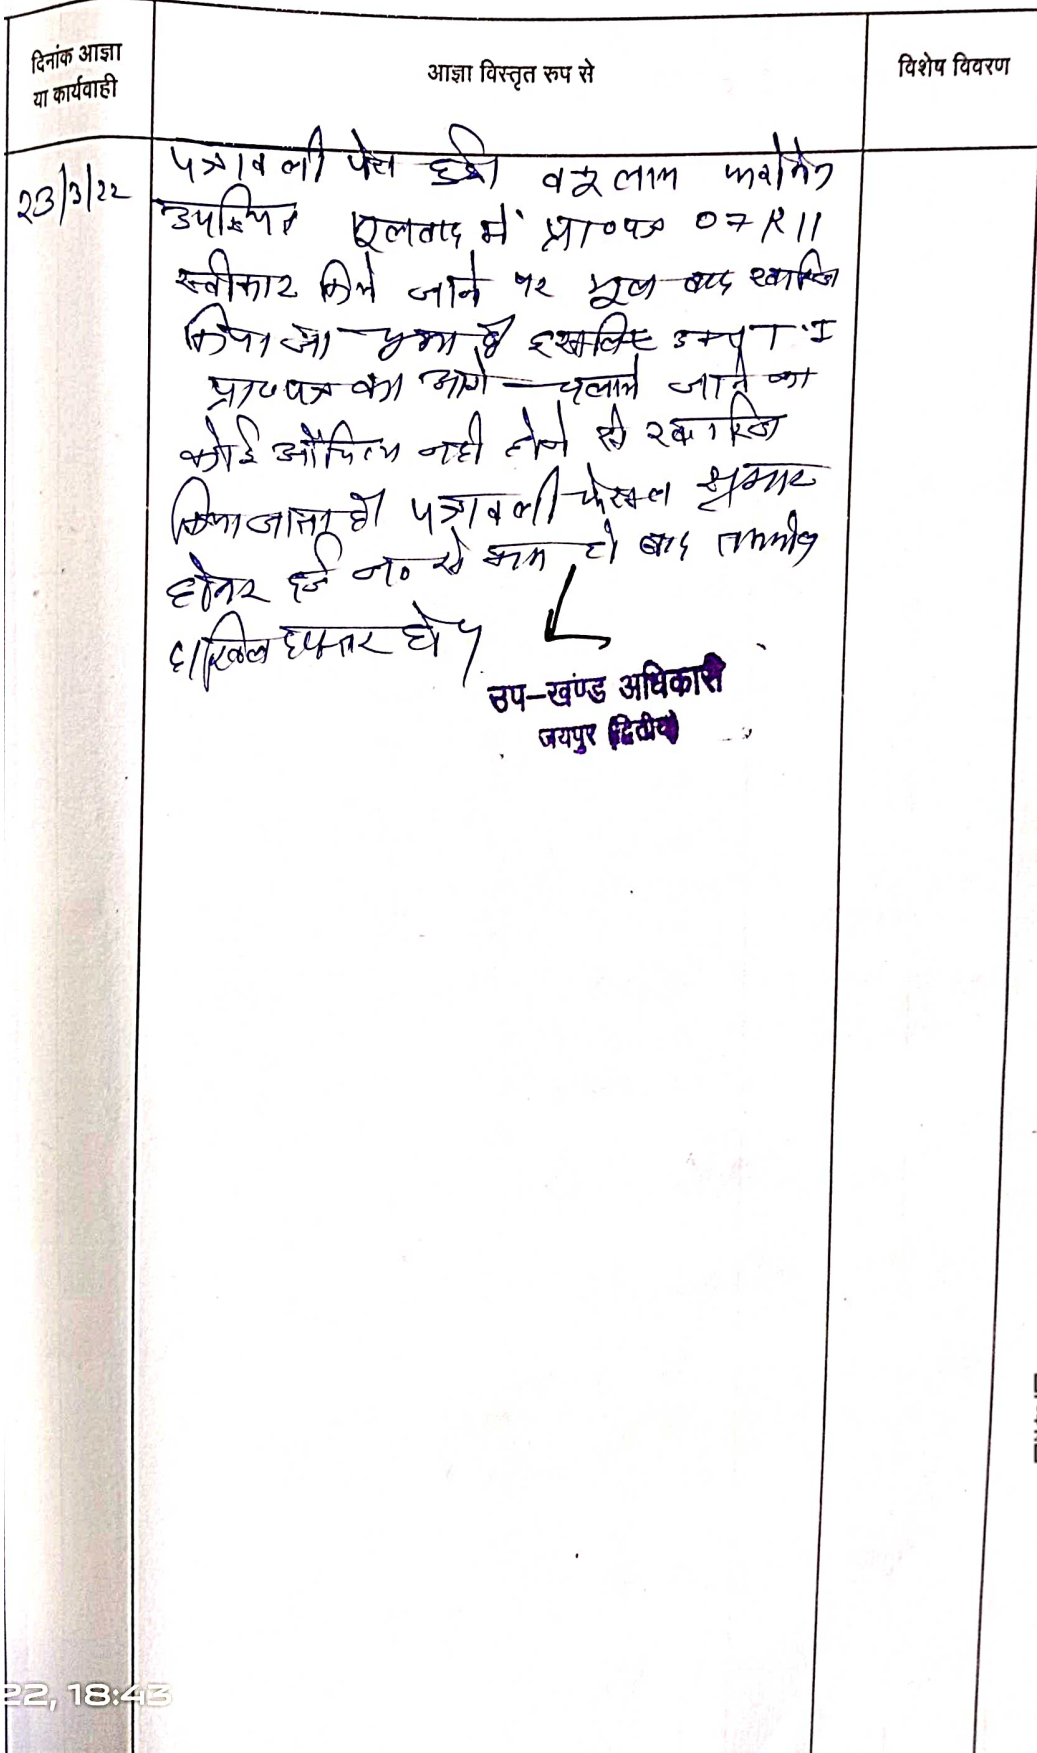 दिनांक आज्ञा
या कार्यवाही
आज्ञा विस्तृत रूप से
विशेष विवरण
23/3/22
पत्रावली पेश हुई। वकुलाय फरीकेन
उपस्थित मूलवाद में प्रा०पत्र 07R11
स्वीकार किये जाने पर मूल वाद खारिज
किया जा चुका है इसलिए
प्रा०पत्र का आगे चलाये जाने का
कोई औचित्य नही होने से खारिज
किया जाता है। पत्रावली फैसल शुमार
होकर नं० से कम हो बाद तकमील
दाखिल दफ्तर हो।
उप-खण्ड अधिकारी
जयपुर (द्वितीय)
22, 18:43